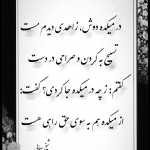 در میکده دوش، زاهدی دیدم مست
تسبیح به گردن و صراحی در دست
گفتم: ز چه در میکده جا کردی؟ گفت:
از میکده هم به سوی حق راهی هست